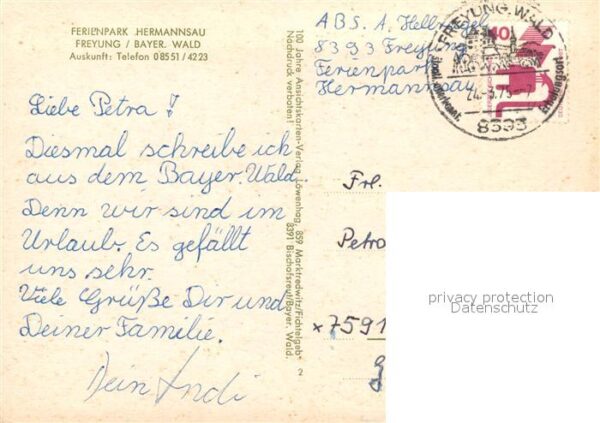 FERIENPARK HERMANNSAU
FREYUNG / BAYER. WALD
Auskunft: Telefon 08551/4223
Liebe Petra!
Diesmal schreibe ich
aus dem Bayer. Wald.
Denn wir sind im
Urlaub. Es gefällt
uns sehr.
Viele Grüße Dir und
Deiner Familie.
Dein Andi
100 Jahre Ansichtskarten-Verlag Löwenhag, 859 Marktredwitz/Fichtelgeb.
Nachdruck verboten! 8391 Bischofsreut/Bayer. Wald.
2
ABS. A. Hellvogel
8393 Freyung
Ferienpark
Hermannsau
FREYUNG. WALD
8393
40
Frl.
Petra
x 7591
privacy protection
Datenschutz